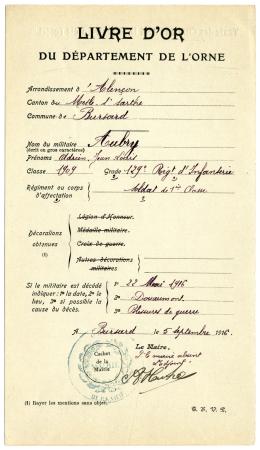 LIVRE D'OR
DU DÉPARTEMENT DE L'ORNE
Arrondissement d'Alençon
Canton du Mesle s/ Sarthe
Commune de Bursard
Nom du militaire Aubry
(écrit en gros caractères)
Prénoms Adrien, Jean
Classe 1909 Grade 129e Régt d'Infanterie
Régiment ou corps d'affectation Soldat de 1ère Classe
Légion d'Honneur.
Médaille militaire.
Décorations obtenues
(1)
Croix de guerre.
Autres décorations militaires
Si le militaire est décédé indiquer : 1° la date, 2° le lieu, 3° si possible la cause du décès.
1° 22 Mai 1916
2° Douaumont
3° Blessures de guerre
A Bursard le 5 Septembre 1916
Le Maire,
Cachet de la Mairie
(1) Rayer les mentions sans objet.